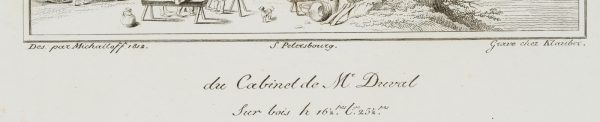 Des. par Michailoff 1812. S. Petersbourg. Gravé chez Klauber.
du Cabinet de Mr. Duval
Sur bois h 16¼ pces L. 25¼ pces